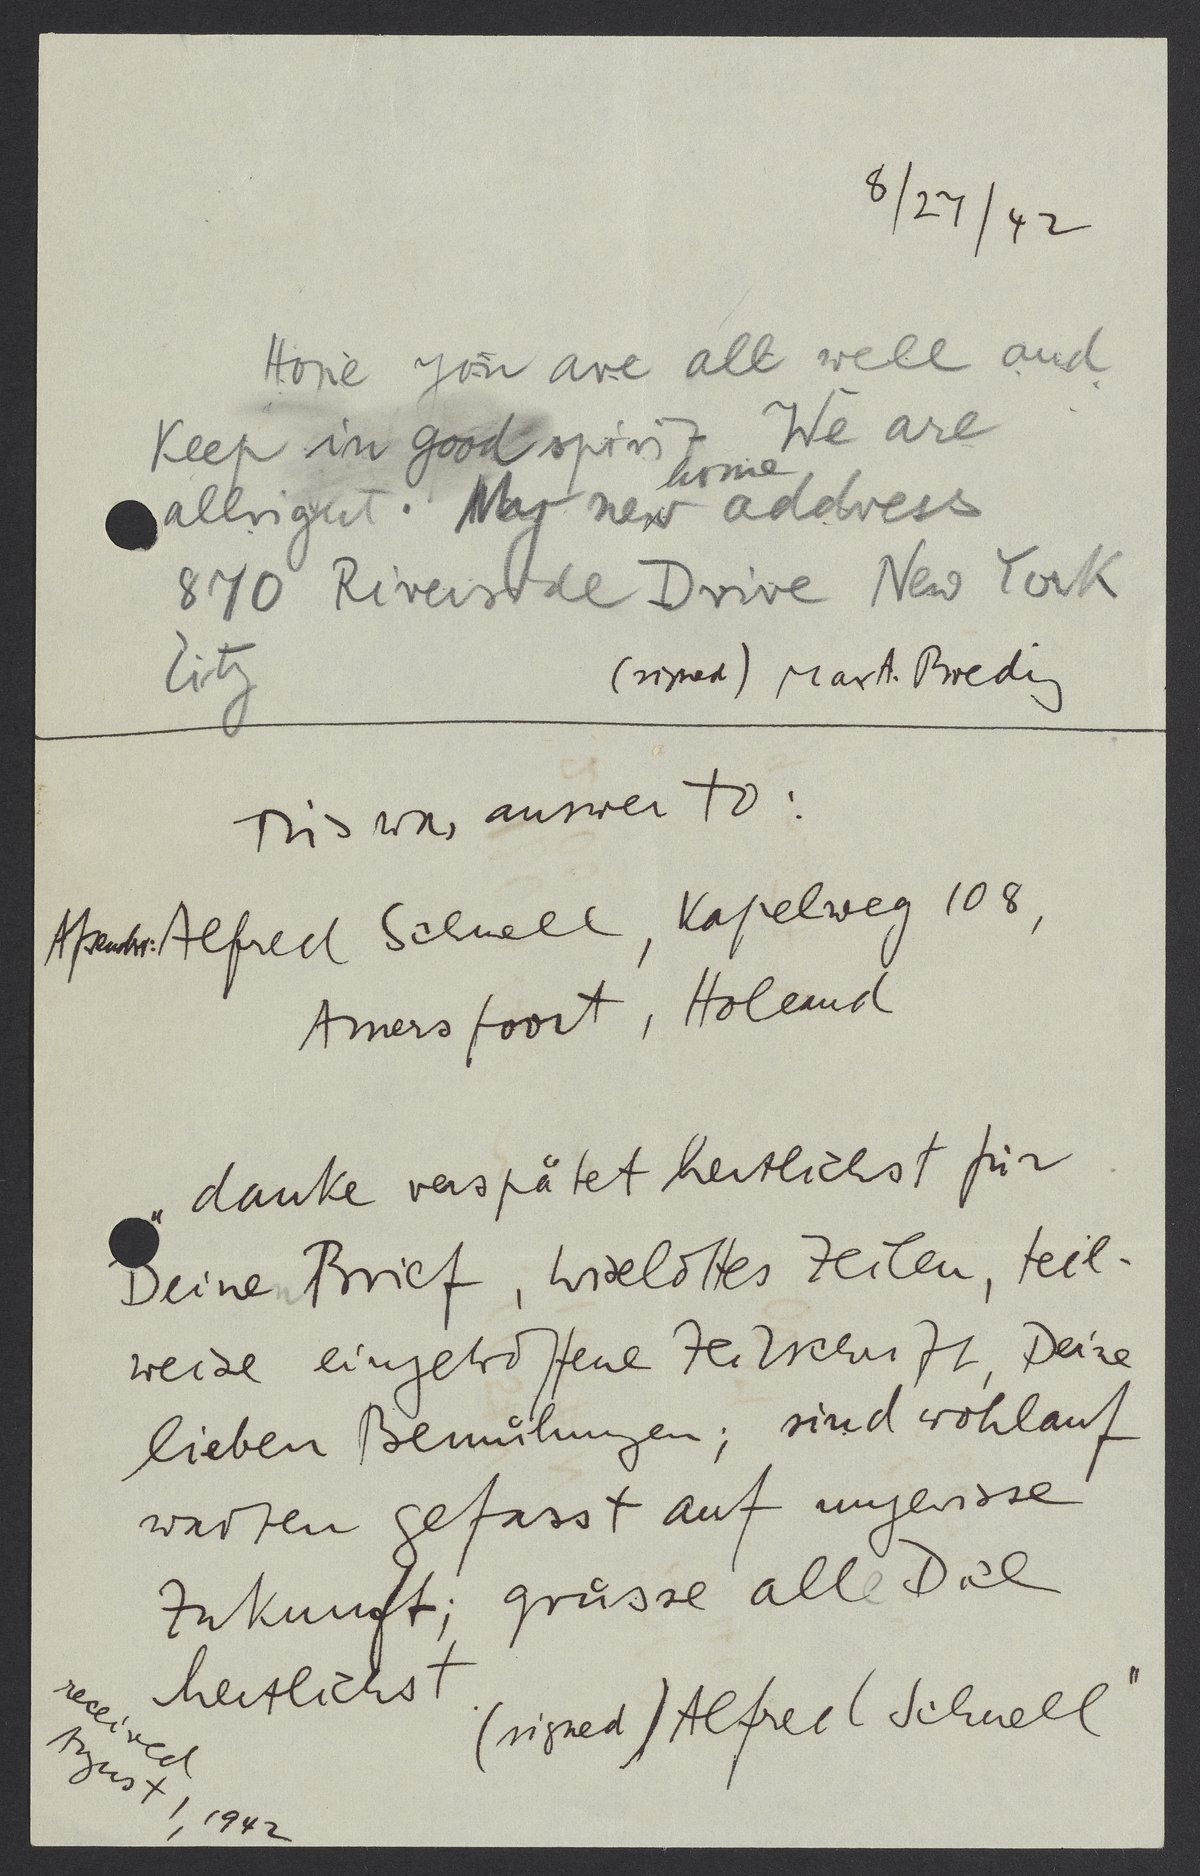 8/27/42
Hope you are all well and
Keep in good spirit. We are
allright. My new home address
870 Riverside Drive New York
City (signed) Max A. Bredig
This was answer to:
Absender: Alfred Schnell, Kapelweg 108,
Amersfoort, Holland
"danke verspätet herzlichst für
Deinen Brief, Zeilen, teil-
weise eingetroffene Zeitschrift, Deine
lieben Bemühungen; sind wohlauf
warten gefasst auf ungewisse
Zukunft; grüsse alle Dich
herzlichst
(signed) Alfred Schnell"
received
August 1, 1942